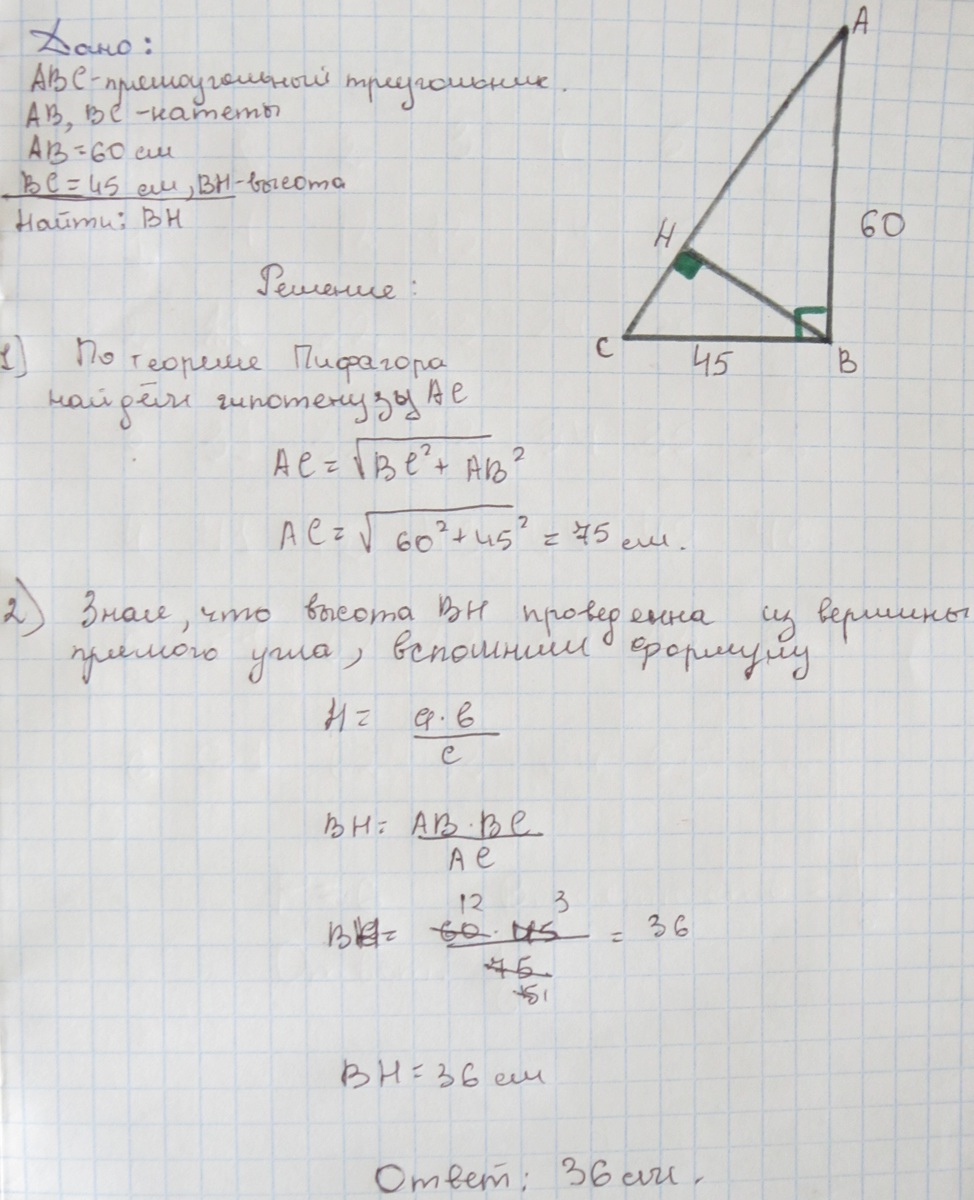 Дано:
ABC-прямоугольный треугольник.
AB, BC-катеты
AB=60 см
BC=45 см, BH-высота
Найти: BH
A
H
60
C
45
B
Решение:
1) По теореме Пифагора
найдём гипотенузу AC
AC = √BC²+ AB²
AC = √60²+45² = 75 см.
2) Знаем, что высота BH проведенна из вершины
прямого угла, вспомним формулу
H = a·b
c
BH = AB·BC
AC
12 3
BH = 60·45 = 36
75
51
BH = 36 см
Ответ: 36 см.